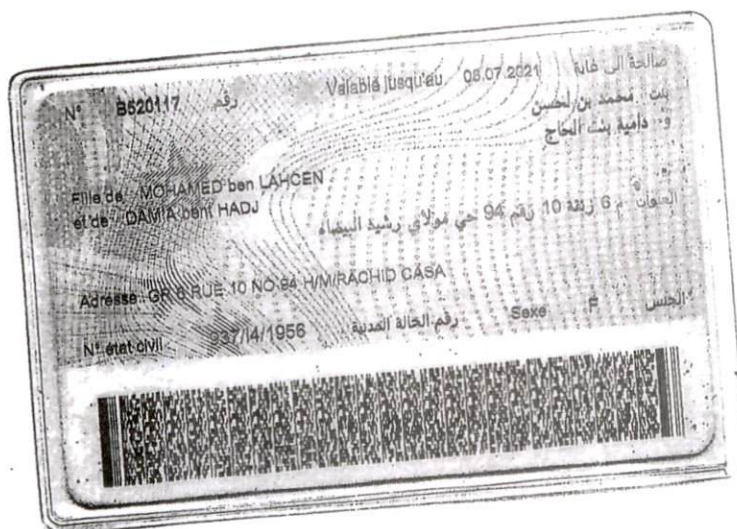 N° B520117 رقم Valable jusqu'au 06.07.2021 صالحة الى غاية
بنت محمد بن لحسن
و دامية بنت الحاج
Fille de MOHAMED ben LAHCEN
et de DAMIA bent HADJ
العنوان م 6 زنقة 10 رقم 94 حي مولاي رشيد البيضاء
Adresse GR 6 RUE 10 NO 94 H/M/RACHID CASA
N° état civil 937/I4/1956 رقم الحالة المدنية Sexe F الجنس